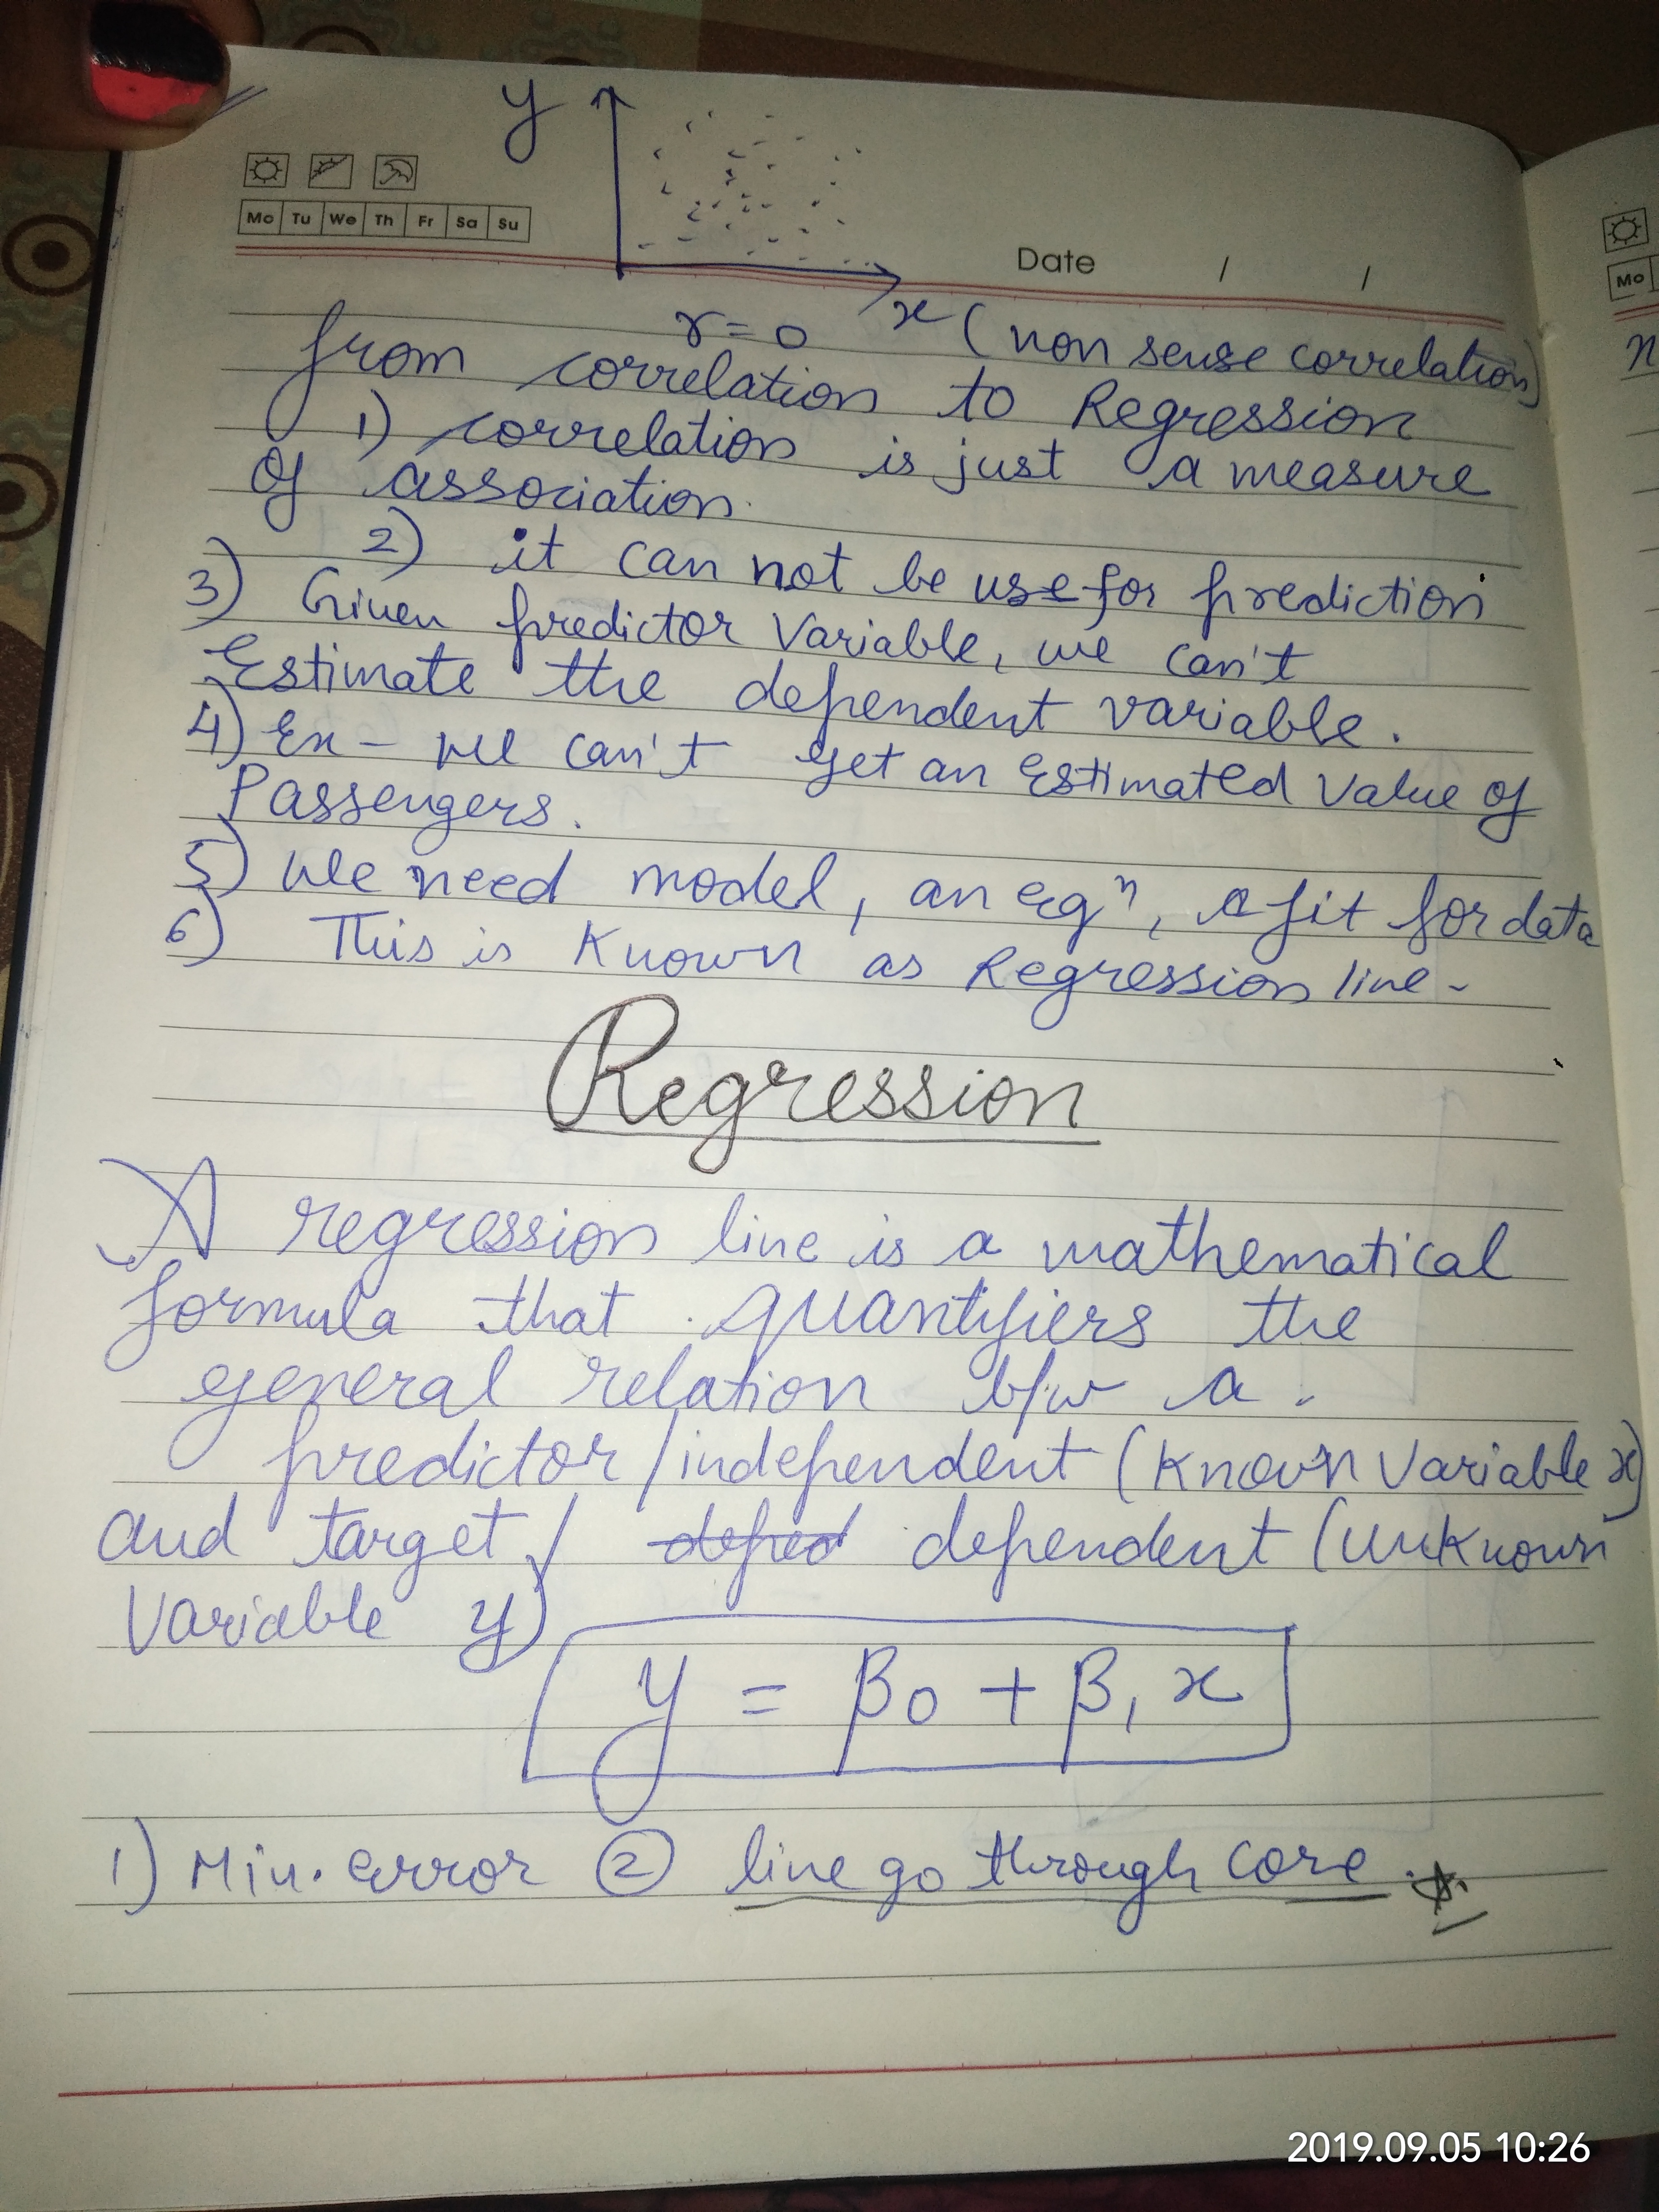 y
Mo Tu We Th Fr Sa Su
Date / /
x
r=0 (non sense correlation)
from correlation to Regression
1) correlation is just a measure
of association.
2) it can not be use for prediction
3) Given predictor Variable, we can't
Estimate the dependent variable.
4) Ex - we can't get an Estimated value of
Passengers.
5) We need model, an eqⁿ, a fit for data
6) This is Known as Regression line.
Regression
A regression line is a mathematical
formula that quantifiers the
general relation b/w a
predictor/independent (Known Variable x)
and target / depend dependent (unknown
Variable y)
y = β0 + β1 x
1) Min. error ② line go through core.
Mo
2019.09.05 10:26